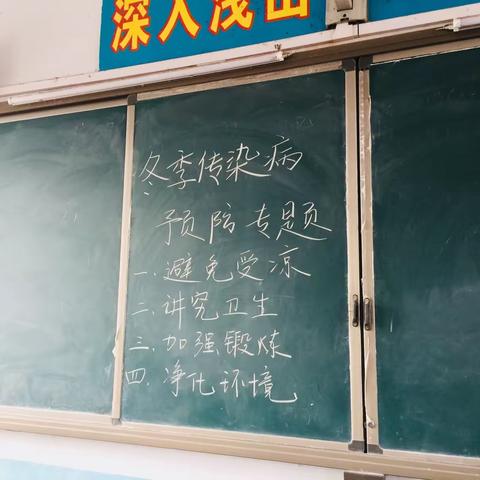 深入浅出
冬季传染病
预防专题
一.避免受凉
二.讲究卫生
三.加强锻炼
四.净化环境